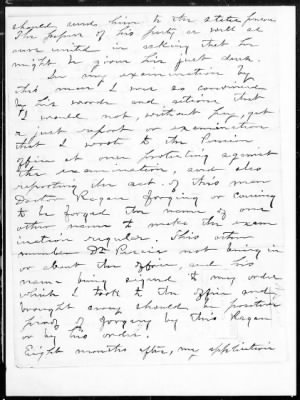 should send him to the states prison
The papers of his party as well as
ours united in asking that he
might be given his just deserts.
In my examination by
this man I was so convinced
by his words and actions that
I would not, without pay, get
a just report or examination
that I wrote to the Pension
office at once protesting against
the examination, and also
reporting the act of this man
Doctor Ragan forging or causing
to be forged the name of one
other name to make the exam
ination regular. This other
member Dr being not being in
or about the office, and his
name being signed to my order
which I took to the office and
brought away should be positive
proof of forgery by this Ragan
or by his order.
Eight months after, my application